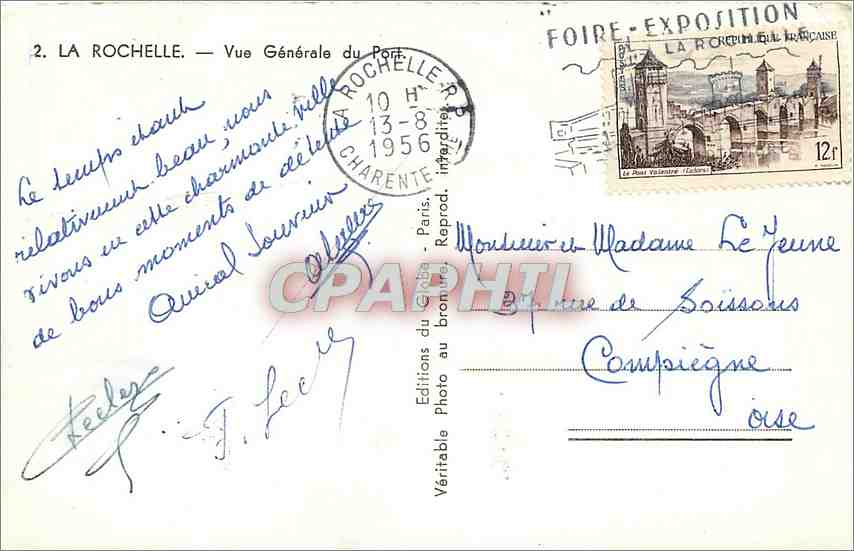 2. LA ROCHELLE. — Vue Générale du Port.
Le temps étant
relativement beau, nous
vivons en cette charmante ville
de bons moments de détente
Amical Souvenir
F.
LA ROCHELLE R.P
10 H
13-8
1956
CHARENTE-
FOIRE-EXPOSITION
LA ROCHELLE
REPUBLIQUE FRANÇAISE
POSTES
12F
Le Pont Valentré (Cahors)
Editions du Globe - Paris.
Véritable Photo au bromure. Reprod. interdite.
Monsieur et Madame Le Jeune
27 rue de Soissons
Compiègne
oise
CPAPHIL